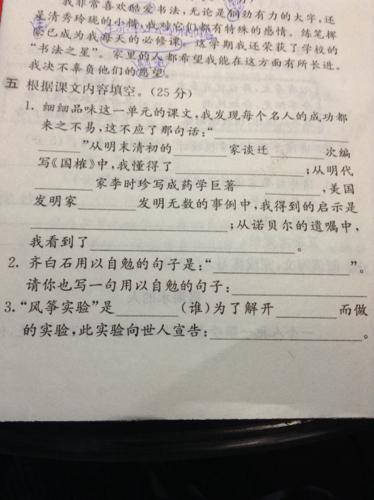 我非常喜欢酷爱书法,无论是刚劲有力的大字,还
是清秀玲珑的小楷,我对它们都有特殊的感情。练笔挥
豪已成为我每天的必修课。这学期我还荣获了学校的
“书法之星”。家里的人都希望我能在这方面有所长进。
我决不辜负他们的愿望。
五 根据课文内容填空。(25分)
1. 细细品味这一单元的课文,我发现每个名人的成功都
来之不易,这不应了那句话:“
”从明末清初的 家谈迁 次编
写《国榷》中,我懂得了 ;从明代
家李时珍写成药学巨著 ,美国
发明家 发明无数的事例中,我得到的启示是
;从诺贝尔的遗嘱中,
我看到了 。
2. 齐白石用以自勉的句子是:“ ”。
请你也写一句用以自勉的句子:
3. “风筝实验”是 (谁)为了解开 而做
的实验,此实验向世人宣告: 。